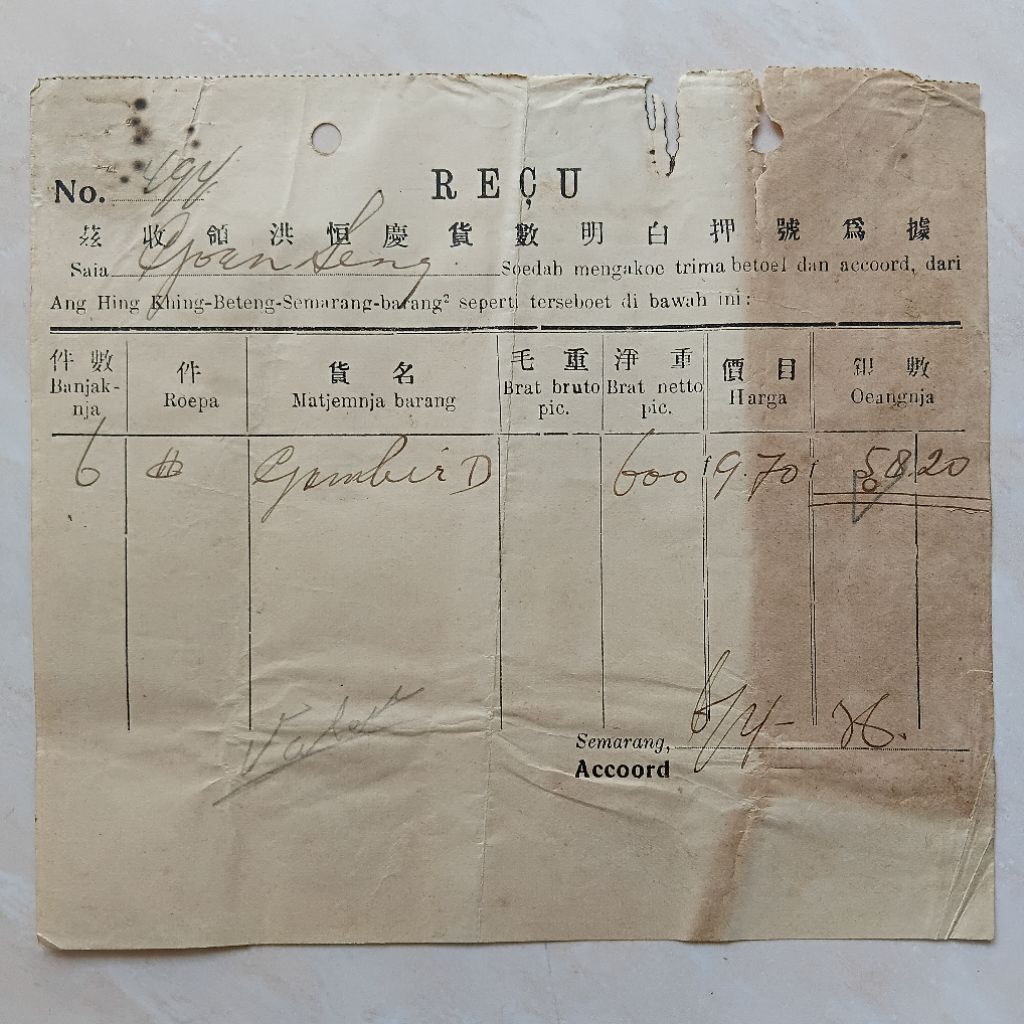 No. 494. REÇU
茲收領洪恒慶貨數明白押號爲據
Saia Goan Seng Soedah mengakoe trima betoel dan accoord, dari
Ang Hing Khing-Beteng-Semarang-barang² seperti terseboet di bawah ini:
件數 件 貨名 毛重 淨重 價目 銀數
Banjak-nja Roepa Matjemnja barang Brat bruto pic. Brat netto pic. Harga Oeangnja
6 Gambir D 600 9.70 58.20
Semarang, 6/4- 26.
Accoord